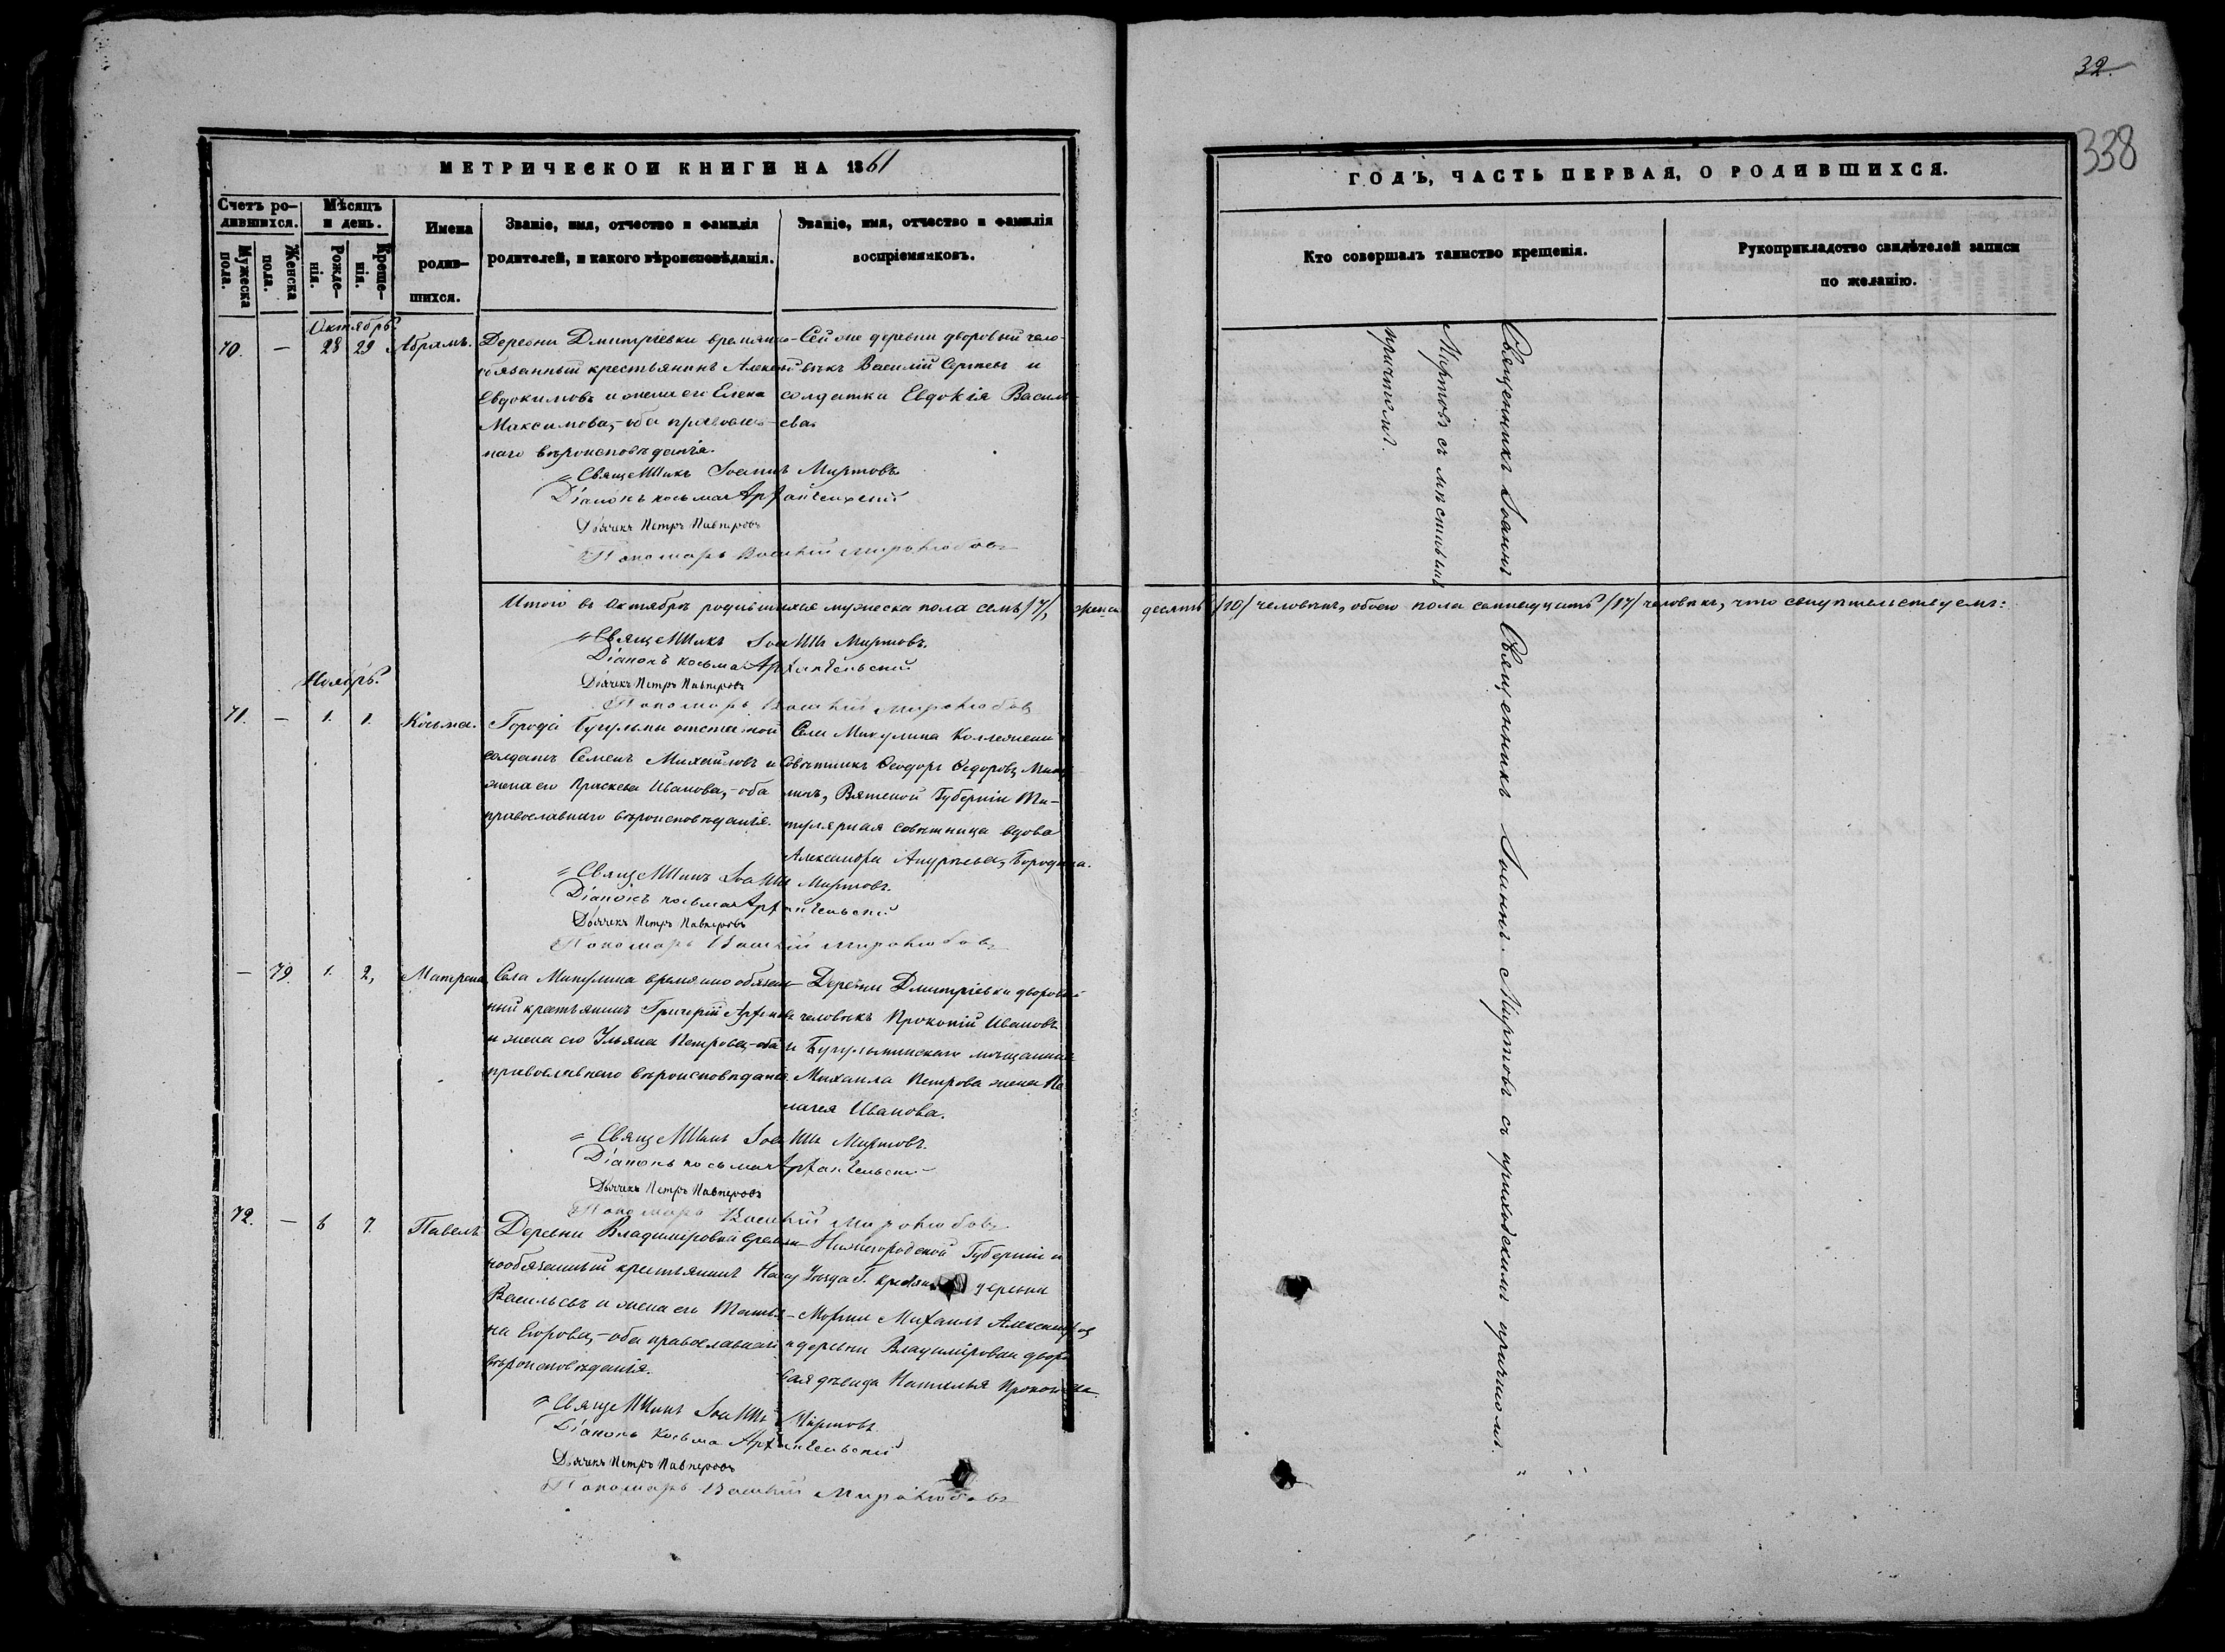 32.
338
МЕТРИЧЕСКОЙ КНИГИ НА 1861
ГОДЪ, ЧАСТЬ ПЕРВАЯ, О РОДИВШИХСЯ.
Счетъ ро-
дившихся.
Мужеска
пола.
Женска
пола.
Мѣсяцъ
и день.
Рожде-
нія.
Креще-
нія.
Имена
родив-
шихся.
Званіе, имя, отчество и фамилія
родителей, и какого вѣроисповѣданія.
Званіе, имя, отчество и фамилія
воспріемниковъ.
Кто совершалъ таинство крещенія.
Рукоприкладство свидѣтелей записи
по желанію.
Октябрь.
70. — 28 29 Абрамъ.
Деревни Дмитріевки временно-
обязанный крестьянинъ Алексѣй
Евдокимовъ и жена его Елена
Максимова, – оба православ-
наго вѣроисповѣданія.
Сей же деревни дворовый чело-
вѣкъ Василій Сергѣевъ и
солдатка Евдокія Василь-
ева.
Священникъ Іоаннъ Миртовъ
Діаконъ Косьма Архангельскій
Дьячекъ Петръ Павперовъ
Пономарь Василій Миролюбовъ
Священникъ Іоаннъ
Миртовъ съ мѣстнымъ
причтомъ.
Итого въ Октябрѣ родившихся мужеска пола семь /7/, женска десять /10/ человѣкъ, обоего пола семнадцать /17/ человѣкъ, что свидѣтельствуемъ:
Священникъ Іоаннъ Миртовъ.
Діаконъ Косьма Архангельскій
Дьячекъ Петръ Павперовъ
Пономарь Василій Миролюбовъ
Ноябрь.
71. — 1. 1. Косьма.
Города Бугульмы отставной
солдатъ Семенъ Михайловъ и
жена его Праскева Иванова, – оба
православнаго вѣроисповѣданія.
Села Микулина Коллежскій
Совѣтникъ Ѳеодоръ Ѳедоровъ
Вятской Губерніи Ти-
тулярная совѣтница вдова
Александра Андреева, Бородина.
Священникъ Іоаннъ Миртовъ.
Діаконъ Косьма Архангельскій
Дьячекъ Петръ Павперовъ
Пономарь Василій Миролюбовъ
— 79. 1. 2, Матрена
Села Микулина временно обязан-
ный крестьянинъ Григорій
и жена его Ульяна Петрова, – оба
православнаго вѣроисповѣданія.
Деревни Дмитріевки дворовый
человѣкъ Прокопій Ивановъ
и Бугульминскаго мѣщанина
Михаила Петрова жена Пе-
лагея Иванова.
Священникъ Іоаннъ Миртовъ.
Діаконъ Косьма Архангельскій
Дьячекъ Петръ Павперовъ
Пономарь Василій Миролюбовъ
72. — 6 7. Павелъ
Деревни Владиміровки времен-
нообязанный крестьянинъ
Васильевъ и жена его Татья-
на Егорова, – оба православнаго
вѣроисповѣданія.
Нижегородской Губерніи и
Уѣзда деревни
Михаилъ Александровъ
и деревни Владиміровки дворо-
вая дѣвица Наталья Прокопьева.
Священникъ Іоаннъ Миртовъ
Діаконъ Косьма Архангельскій
Дьячекъ Петръ Павперовъ
Пономарь Василій Миролюбовъ
Священникъ Іоаннъ Миртовъ съ приходскимъ причтомъ.